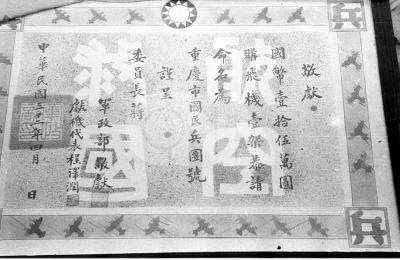 航空
救國
敬獻
國幣壹拾伍萬圓
購飛機壹架恭請
命名為
重慶市國民兵團號
謹呈
委員長蔣
軍政部 獻
獻機代表程澤潤
中華民國三十一年四月 日